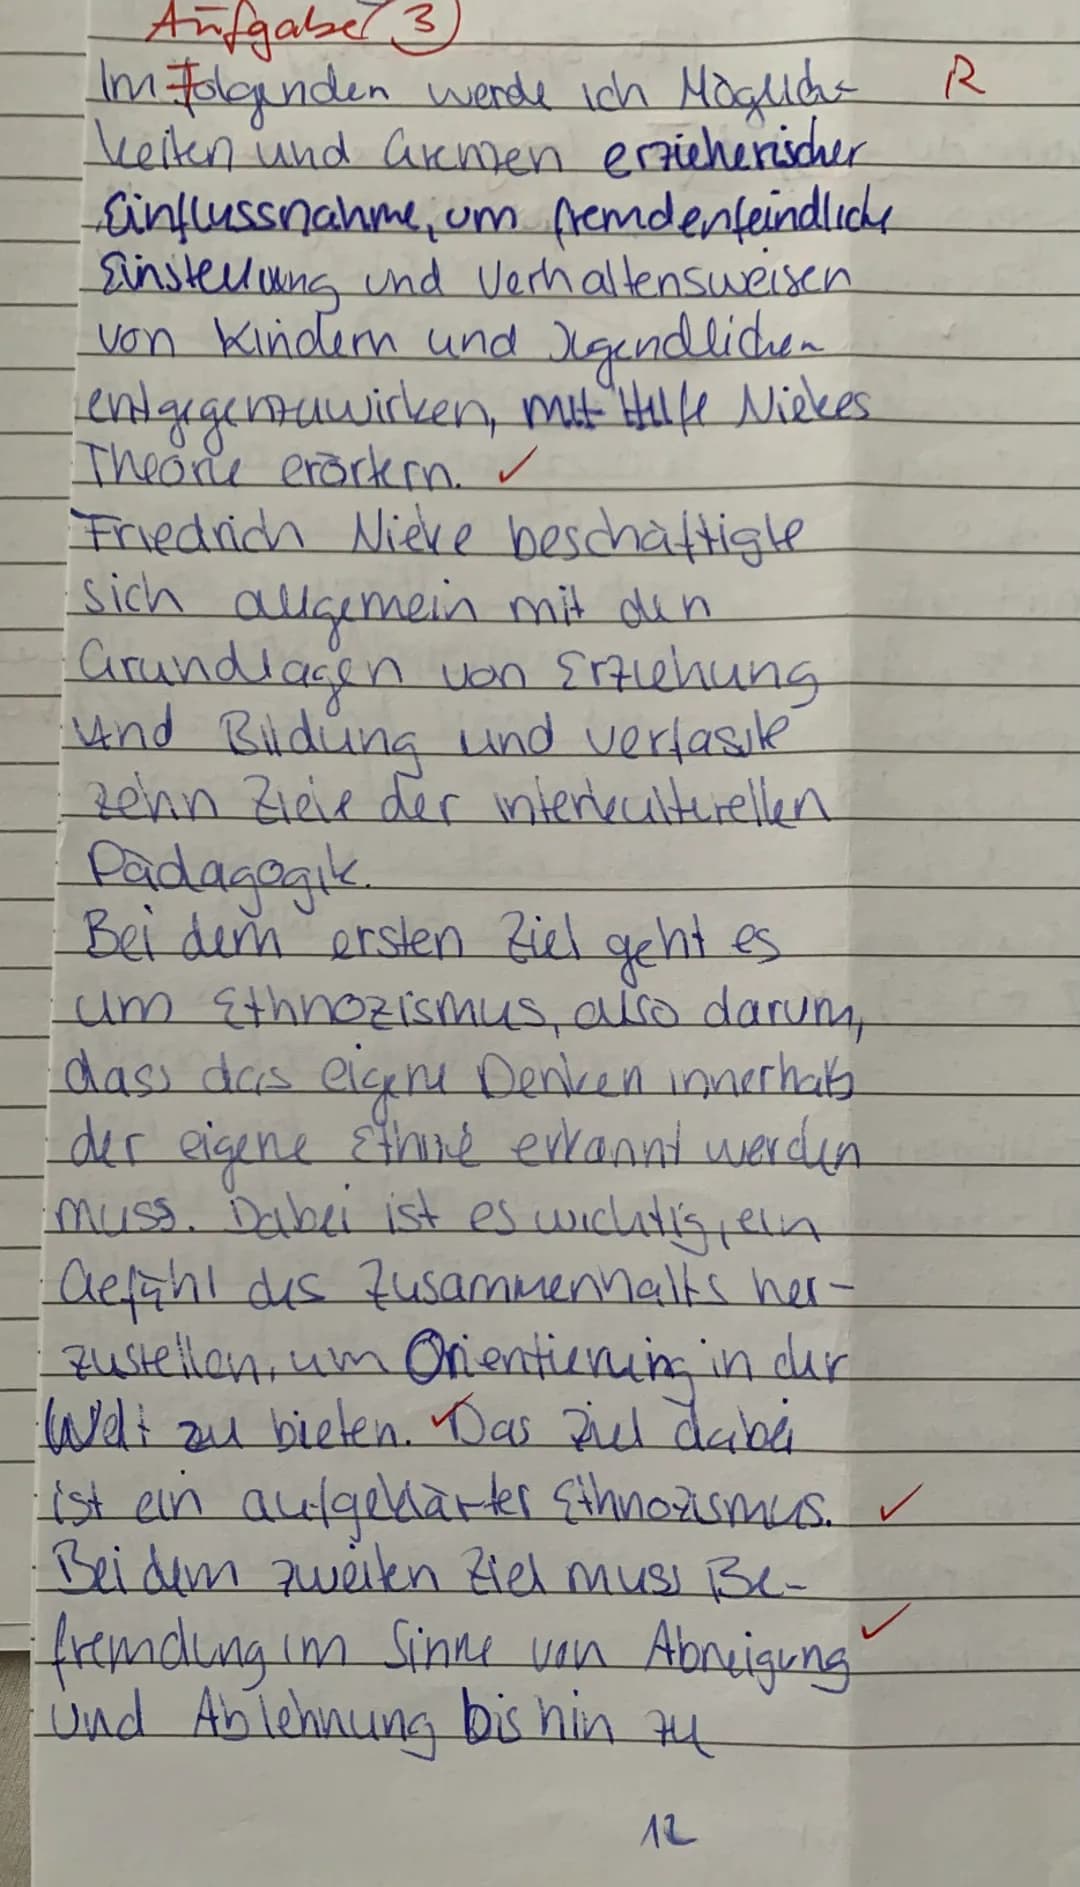 Aufgabe 3
Im Folgenden werde ich Möglich- R
keiten und Grenzen erzieherischer
Einflussnahme, um fremdenfeindliche
Einstellung und Verhaltensweisen
von Kindern und Jugendlichen
entgegenzuwirken, mit Hilfe Niekes
Theorie erörtern. ✓
Friedrich Nieke beschäftigte
sich allgemein mit den
Grundlagen von Erziehung
und Bildung und verfasste
zehn Ziele der interkulturellen
Pädagogik.
Bei dem ersten Ziel geht es
um Ethnozismus, also darum,
dass das eigene Denken innerhalb
der eigene Ethnie erkannt werden
muss. Dabei ist es wichtig, ein
Gefühl des Zusammenhalts her-
zustellen, um Orientierung in der
Welt zu bieten. ✓ Das Ziel dabei
ist ein aufgeklärter Ethnozismus. ✓
Bei dem zweiten Ziel muss Be-
fremdung im Sinne von Abneigung ✓
und Ablehnung bis hin zu
12